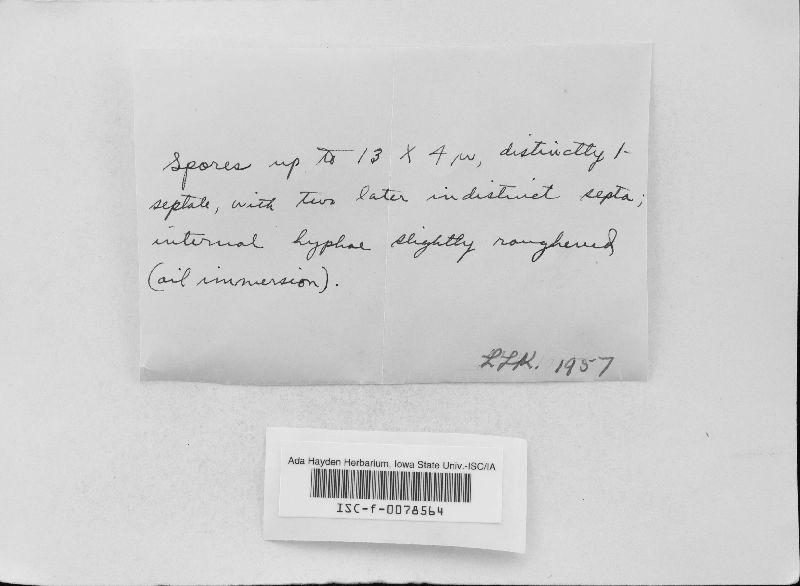 Spores up to 13 X 4 µ, distinctly 1-
septate, with two later indistinct septa;
internal hyphae slightly roughened
(oil immersion).
LLK. 1957
Ada Hayden Herbarium, Iowa State Univ.-ISC/IA
ISC-f-0078564